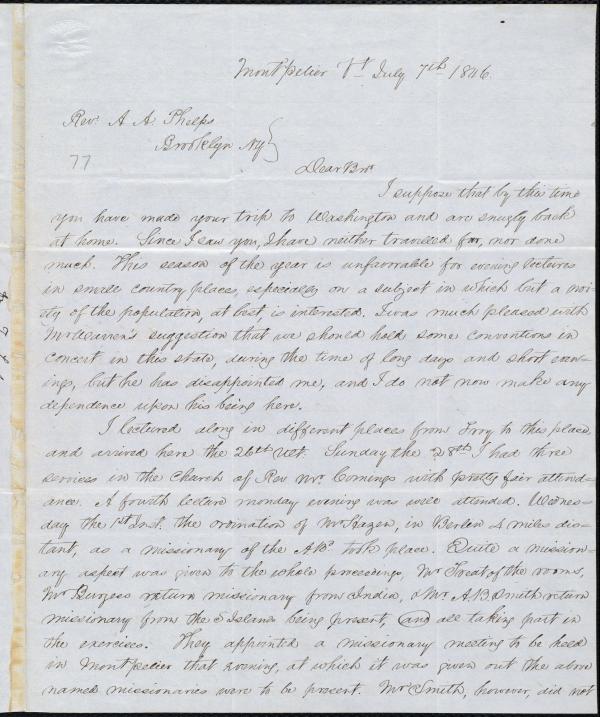 Montpelier Vt July 7th 1846.
Rev. A A Phelps
Brooklyn Ny}
77
Dear Bro.
I suppose that by this time
you have made your trip to Washington and are snugly back
at home. Since I saw you, I have neither travelled far, nor done
much. This season of the year is unfavorable for evening lectures
in small country places, especially on a subject in which but a moi-
ety of the population, at best is interested. I was much pleased with
Mr suggestion that we should hold some conventions in
concert in this state, during the time of long days and short even-
ings, but he has disappointed me, and I do not now make any
dependence upon his being here.
I lectured along in different places from Troy to this place
and arrived here the 26th ult. Sunday the 28th I had three
services in the Church of Rev Mr. Comings with pretty fair attend-
ance. A fourth lecture monday evening was well attended. Wednes-
day the 1st Inst. the ordination of Mr Hazen, in Berlin 4 miles dis-
tant, as a missionary of the A Bd took place. Quite a mission-
ary aspect was given to the whole proceedings, Mr Treat of the rooms,
Mr Burgess return missionary from India, & Mr. A. B. Smith return
missionary from the S Islands being present, and all taking part in
the exercises. They appointed a missionary meeting to be held
in Montpelier that evening, at which it was given out the above
named missionaries were to be present. Mr Smith, however, did not